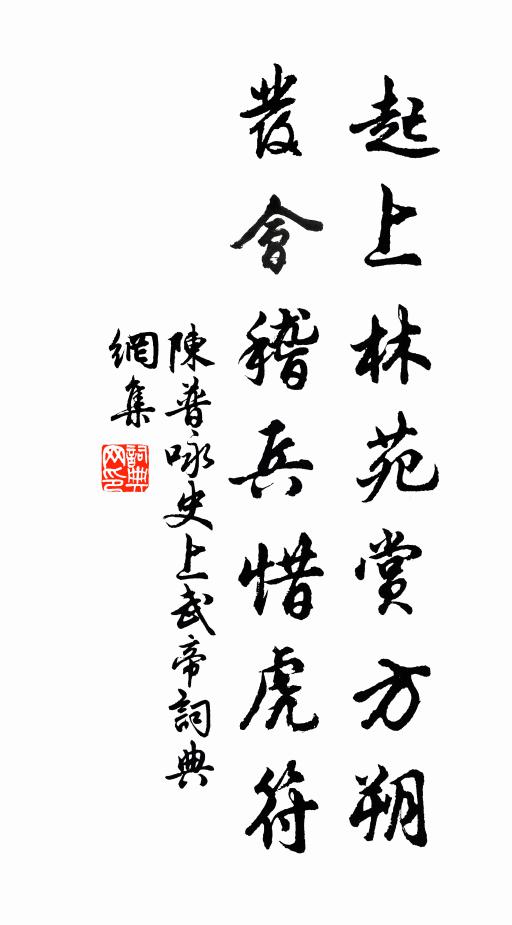 起上林苑賞方朔
發會稽兵惜虎符
陳普咏史上武帝詞典
網集
詞典
网印